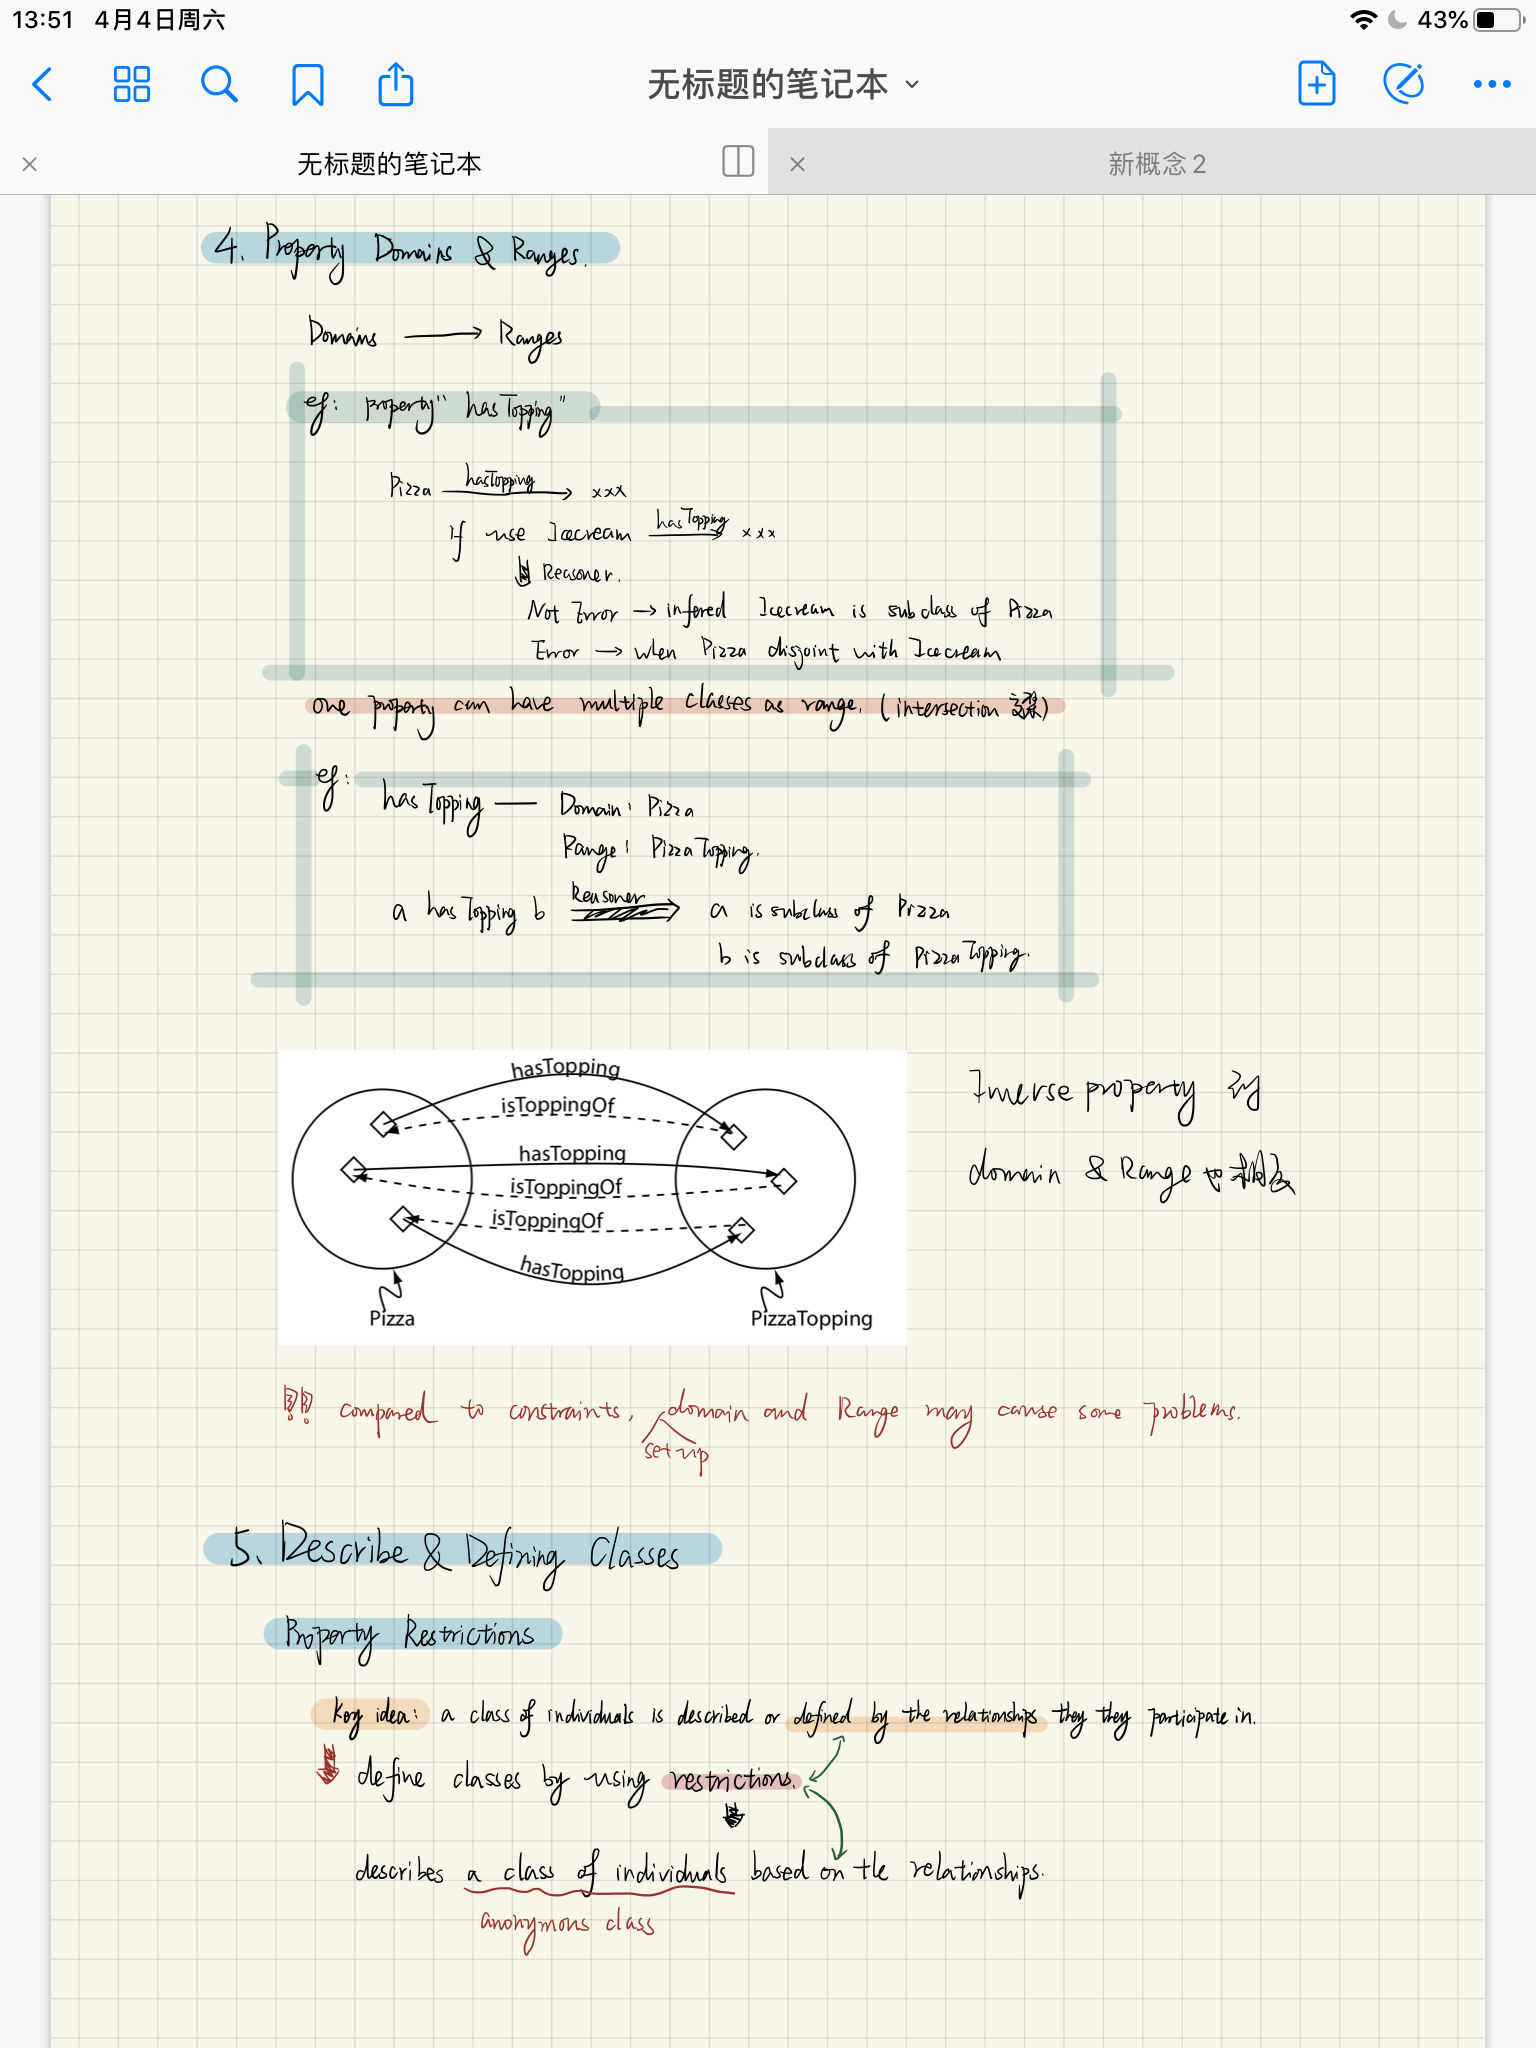 13:51 4月4日周六 43%
无标题的笔记本
无标题的笔记本 新概念2
4. Property Domains & Ranges.
Domains → Ranges
eg: property "hasTopping"
Pizza hasTopping → xxx
If use Icecream hasTopping → xxx
Reasoner.
Not Error → infered Icecream is subclass of Pizza
Error → when Pizza disjoint with Icecream
one property can have multiple classes as range. (intersection)
eg:
hasTopping — Domain: Pizza
Range: PizzaTopping.
a hasTopping b Reasoner ⇒ a is subclass of Pizza
b is subclass of PizzaTopping.
hasTopping
isToppingOf
hasTopping
isToppingOf
isToppingOf
hasTopping
Pizza PizzaTopping
Inverse property 的
domain & Range 也相反
!!! compared to constraints, domain and Range may cause some problems.
set up
5. Describe & Defining Classes
Property Restrictions
Key idea: a class of individuals is described or defined by the relationships they they participate in.
define classes by using restrictions.
describes a class of individuals based on the relationships.
anonymous class